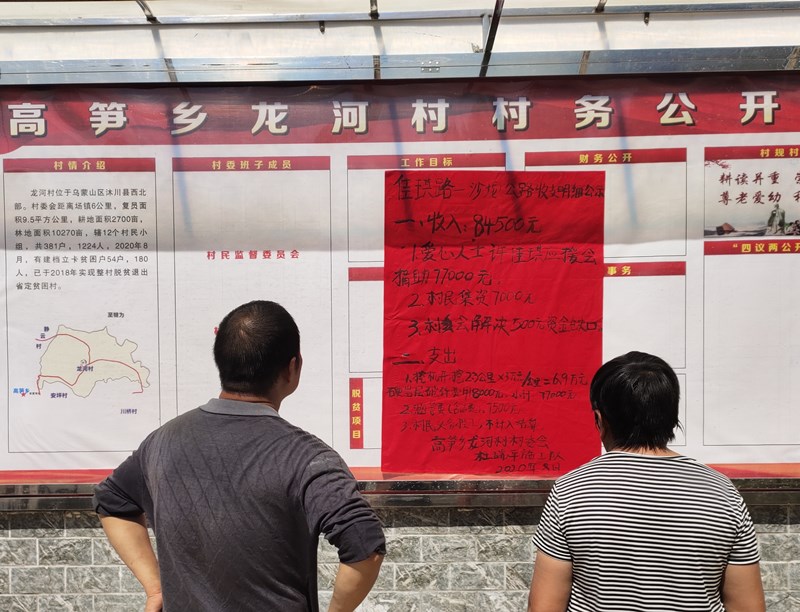 高笋乡龙河村村务公开
村情介绍
龙河村位于乌蒙山区沐川县西北
部。村委会距离场镇6公里，复员面
积9.5平方公里，耕地面积2700亩，
林地面积10270亩，辖12个村民小
组，共381户，1224人，2020年8
月，有建档立卡贫困户54户，180
人，已于2018年实现整村脱贫退出
省定贫困村。
至犍为
龙河村
安坪村
川桥村
村委班子成员
村民监督委员会
工作目标
脱贫项目
财务公开
事务
村规村
耕读并重
尊老爱幼
“四议两公开
佳琪路一沙坝公路收支明细公示
一、收入：84500元
1.爱心人士许佳琪应援会
捐助77000元.
2.村民集资7000元
3.村委会解决500元资金缺口.
二.支出
3万/公里=6.9万元
8000元,小计:77000元
7500元
不计入
高笋乡龙河村村委会
2020年